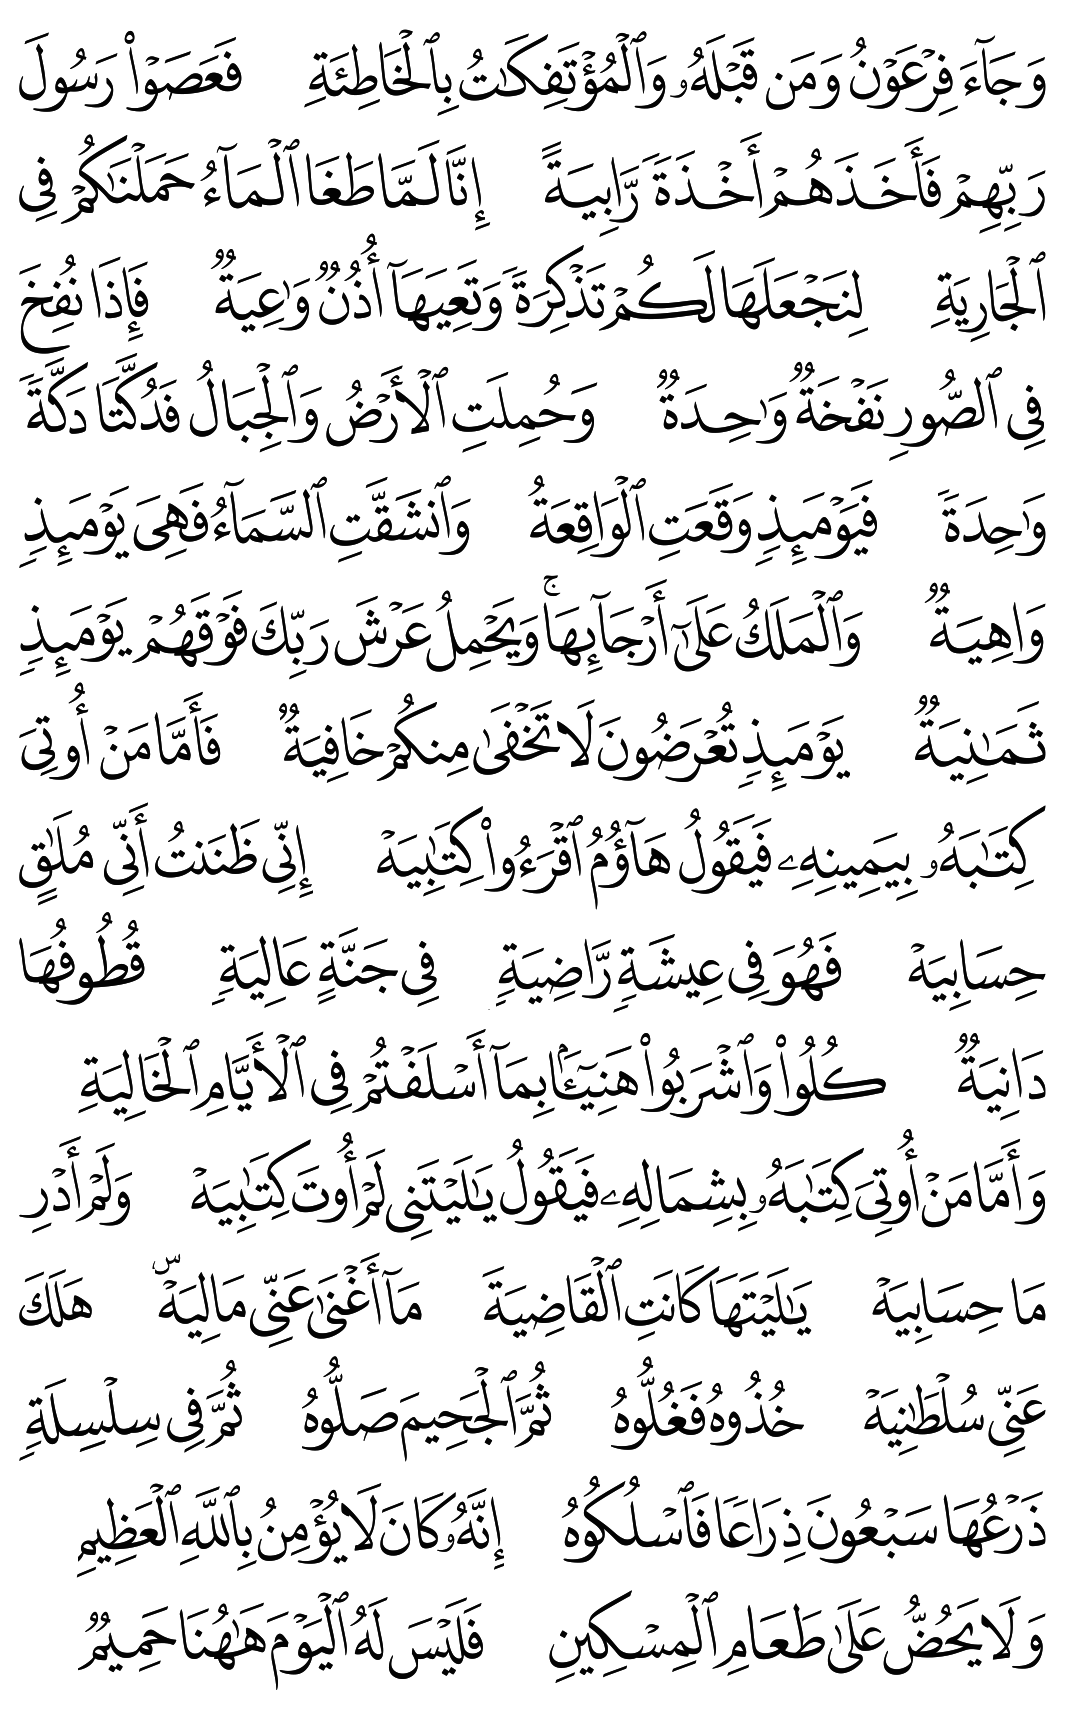 وَجَآءَ فِرْعَوْنُ وَمَن قَبْلَهُۥ وَٱلْمُؤْتَفِكَٰتُ بِٱلْخَاطِئَةِ فَعَصَوْا۟ رَسُولَ
رَبِّهِمْ فَأَخَذَهُمْ أَخْذَةً رَّابِيَةً إِنَّا لَمَّا طَغَا ٱلْمَآءُ حَمَلْنَٰكُمْ فِى
ٱلْجَارِيَةِ لِنَجْعَلَهَا لَكُمْ تَذْكِرَةً وَتَعِيَهَآ أُذُنٌ وَٰعِيَةٌ فَإِذَا نُفِخَ
فِى ٱلصُّورِ نَفْخَةٌ وَٰحِدَةٌ وَحُمِلَتِ ٱلْأَرْضُ وَٱلْجِبَالُ فَدُكَّتَا دَكَّةً
وَٰحِدَةً فَيَوْمَئِذٍ وَقَعَتِ ٱلْوَاقِعَةُ وَٱنشَقَّتِ ٱلسَّمَآءُ فَهِىَ يَوْمَئِذٍ
وَاهِيَةٌ وَٱلْمَلَكُ عَلَىٰٓ أَرْجَآئِهَا ۚ وَيَحْمِلُ عَرْشَ رَبِّكَ فَوْقَهُمْ يَوْمَئِذٍ
ثَمَٰنِيَةٌ يَوْمَئِذٍ تُعْرَضُونَ لَا تَخْفَىٰ مِنكُمْ خَافِيَةٌ فَأَمَّا مَنْ أُوتِىَ
كِتَٰبَهُۥ بِيَمِينِهِۦ فَيَقُولُ هَآؤُمُ ٱقْرَءُوا۟ كِتَٰبِيَهْ إِنِّى ظَنَنتُ أَنِّى مُلَٰقٍ
حِسَابِيَهْ فَهُوَ فِى عِيشَةٍ رَّاضِيَةٍ فِى جَنَّةٍ عَالِيَةٍ قُطُوفُهَا
دَانِيَةٌ كُلُوا۟ وَٱشْرَبُوا۟ هَنِيٓـًٔۢا بِمَآ أَسْلَفْتُمْ فِى ٱلْأَيَّامِ ٱلْخَالِيَةِ
وَأَمَّا مَنْ أُوتِىَ كِتَٰبَهُۥ بِشِمَالِهِۦ فَيَقُولُ يَٰلَيْتَنِى لَمْ أُوتَ كِتَٰبِيَهْ وَلَمْ أَدْرِ
مَا حِسَابِيَهْ يَٰلَيْتَهَا كَانَتِ ٱلْقَاضِيَةَ مَآ أَغْنَىٰ عَنِّى مَالِيَهْ ۜ هَلَكَ
عَنِّى سُلْطَٰنِيَهْ خُذُوهُ فَغُلُّوهُ ثُمَّ ٱلْجَحِيمَ صَلُّوهُ ثُمَّ فِى سِلْسِلَةٍ
ذَرْعُهَا سَبْعُونَ ذِرَاعًا فَٱسْلُكُوهُ إِنَّهُۥ كَانَ لَا يُؤْمِنُ بِٱللَّهِ ٱلْعَظِيمِ
وَلَا يَحُضُّ عَلَىٰ طَعَامِ ٱلْمِسْكِينِ فَلَيْسَ لَهُ ٱلْيَوْمَ هَٰهُنَا حَمِيمٌ